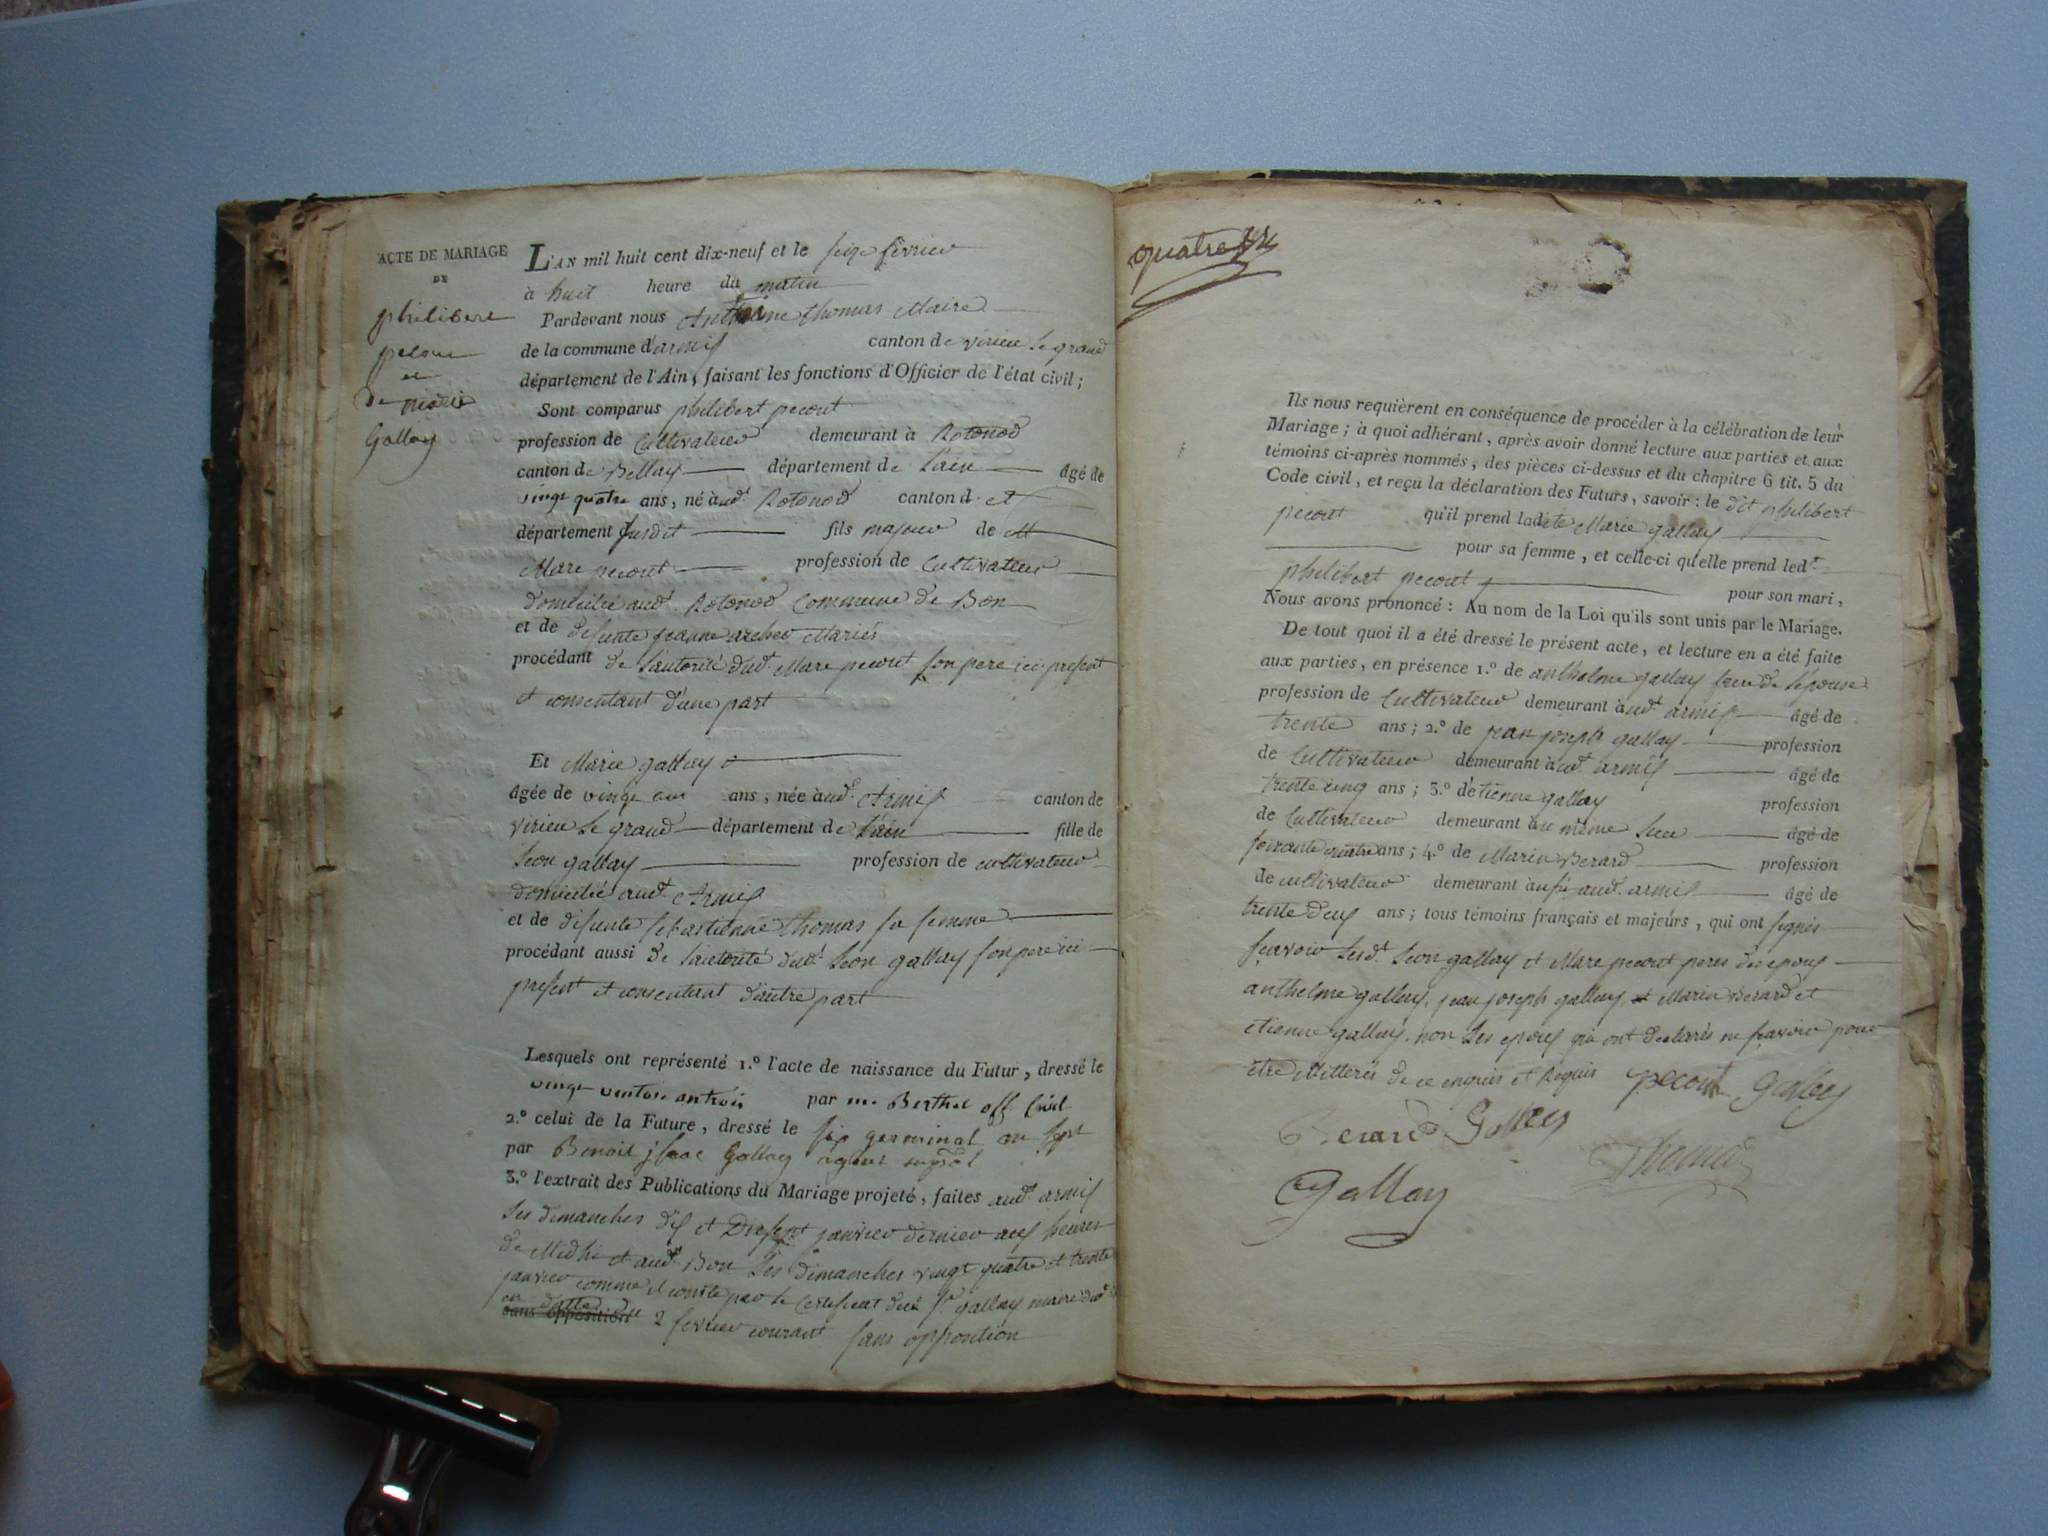 ACTE DE MARIAGE
DE
philibert
pecout
et
de marie
Gallay
L'AN mil huit cent dix-neuf et le seize fevrier
à huit heure du matin
Pardevant nous thomas Maire
de la commune d'armis canton de virieu le grand
département de l'Ain, faisant les fonctions d'Officier de l'état civil;
Sont comparus philibert pecout
profession de Cultivateur demeurant à Rotonod
canton de Bellay département de L'ain âgé de
vingt quatre ans, né audt. Rotonod canton d. et
département susdit fils majeur de
Marc pecout profession de Cultivateur
domicilié audt. Rotonod Commune de Bon
et de defunte jeanne archer Mariés
procédant de l'autorité dudt. Marc pecout son pere ici present
et consentant d'une part
Et Marie gallay
âgée de vingt un ans, née audt. Armis canton de
virieu le grand département de L'ain fille de
Leon gallay profession de cultivateur
domicilié audt. Armis
et de defunte sebastienne thomas sa femme
procédant aussi de l'autorité dudt. Leon gallay son pere ici
present et consentant d'autre part
Lesquels ont représenté 1.º l'acte de naissance du Futur, dressé le
vingt ventose an trois par m. Berthet off Civil
2.º celui de la Future, dressé le six germinal an sept
par Benoit jsaac Gallay agent
3.º l'extrait des Publications du Mariage projeté, faites audt. armis
Les dimanches dix et Dixsept janvier dernier aux heures
de Midhi et audt. Bon Les dimanches vingt quatre et trente
janvier comme il conste par le Certificat dud. gallay maire dud.
en datte du
sans opposition 2 fevrier courant sans opposition
quatre
Ils nous requièrent en conséquence de procéder à la célébration de leur
Mariage; à quoi adhérant, après avoir donné lecture aux parties et aux
témoins ci-après nommés, des pièces ci-dessus et du chapitre 6 tit. 5 du
Code civil, et reçu la déclaration des Futurs, savoir: le dit philibert
pecout qu'il prend ladite Marie gallay
pour sa femme, et celle-ci qu'elle prend led.t
philibert pecout pour son mari,
Nous avons prononcé: Au nom de la Loi qu'ils sont unis par le Mariage.
De tout quoi il a été dressé le présent acte, et lecture en a été faite
aux parties, en présence 1.º de anthelme gallay frere de l'epouse
profession de Cultivateur demeurant audt. armis âgé de
trente ans; 2.º de jean joseph gallay profession
de Cultivateur demeurant audt. armis âgé de
trente cinq ans; 3.º d'etienne gallay profession
de Cultivateur demeurant au même lieu âgé de
soixante quatre ans; 4.º de Marin Berard profession
de cultivateur demeurant aussi audt. armis âgé de
trente deux ans; tous témoins français et majeurs, qui ont signés
sçavoir Lesdt. Leon gallay et Marc pecout peres des epoux
anthelme gallay, jean joseph gallay, et Marin Berard et
etienne gallay, non Les epoux qui ont declarés ne sçavoir pour
être illitterés de ce enquis et Requis pecout Gallay
Berard Gallay
Thomas
Gallay